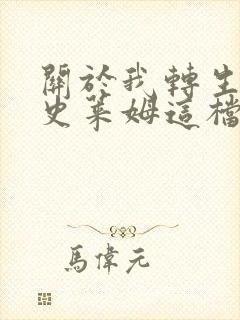 關於我轉生
史萊姆這檔
馬偉元